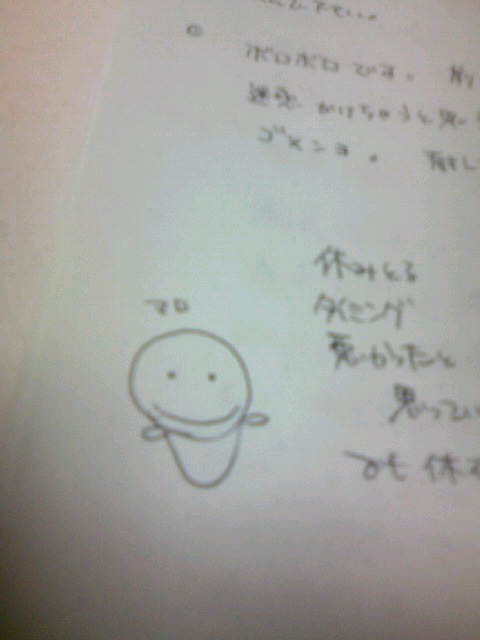 ボロボロです。
迷惑かけちゃうと思い
ゴメンヨ。
マロ
休みとる
タイミング
悪かったと
思ってい
でも休